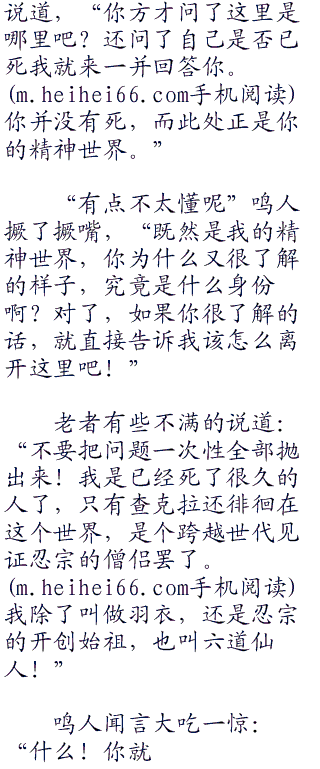 说道，“你方才问了这里是
哪里吧？还问了自己是否已
死我就来一并回答你。
(m.heihei66.com手机阅读)
你并没有死，而此处正是你
的精神世界。”
“有点不太懂呢”鸣人
撅了撅嘴，“既然是我的精
神世界，你为什么又很了解
的样子，究竟是什么身份
啊？对了，如果你很了解的
话，就直接告诉我该怎么离
开这里吧！”
老者有些不满的说道：
“不要把问题一次性全部抛
出来！我是已经死了很久的
人了，只有查克拉还徘徊在
这个世界，是个跨越世代见
证忍宗的僧侣罢了。
(m.heihei66.com手机阅读)
我除了叫做羽衣，还是忍宗
的开创始祖，也叫六道仙
人！”
鸣人闻言大吃一惊：
“什么！你就